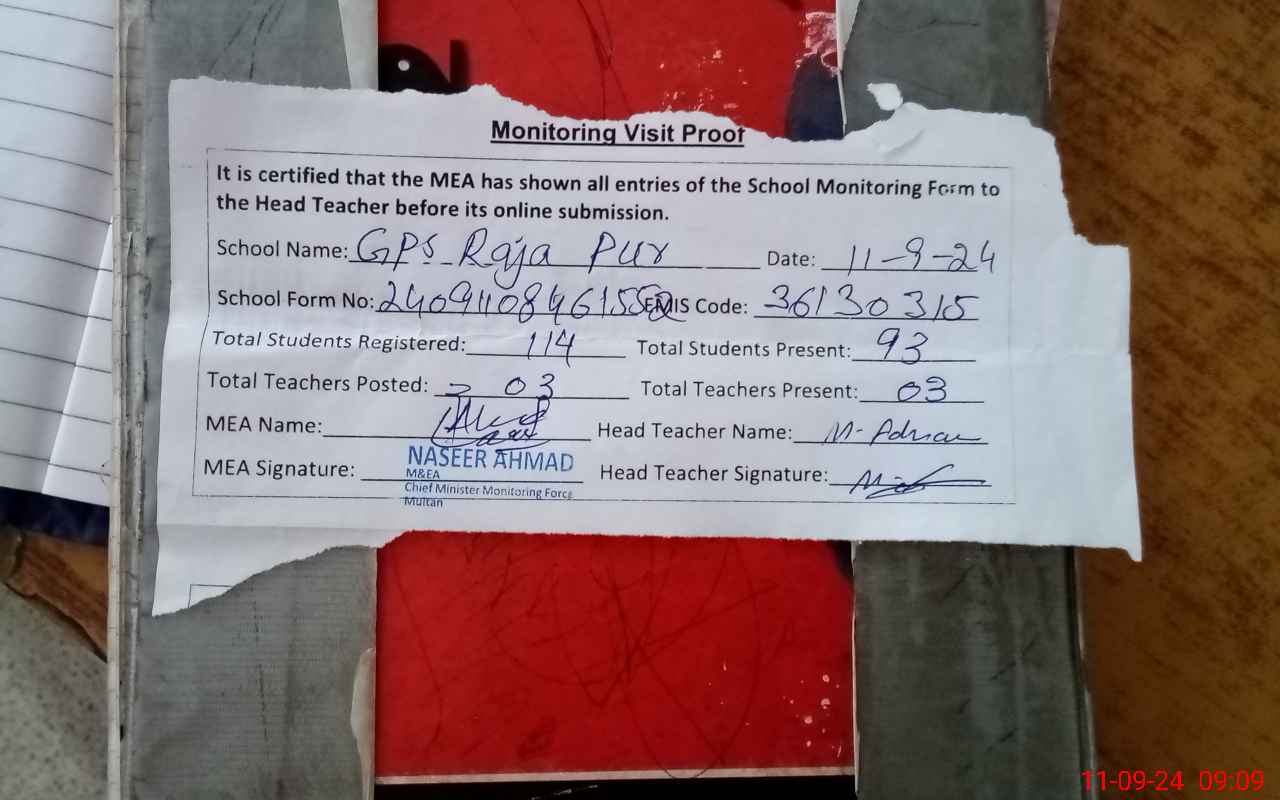 Monitoring Visit Proof
It is certified that the MEA has shown all entries of the School Monitoring Form to
the Head Teacher before its online submission.
School Name: GPS Raja Pur Date: 11-9-24
School Form No: 2409110846155 EMIS Code: 36130315
Total Students Registered: 114 Total Students Present: 93
Total Teachers Posted: 03 Total Teachers Present: 03
MEA Name: Head Teacher Name: M. Adnan
NASEER AHMAD
MEA Signature: Head Teacher Signature:
M&EA
Chief Minister Monitoring Force
Multan
11-09-24 09:09